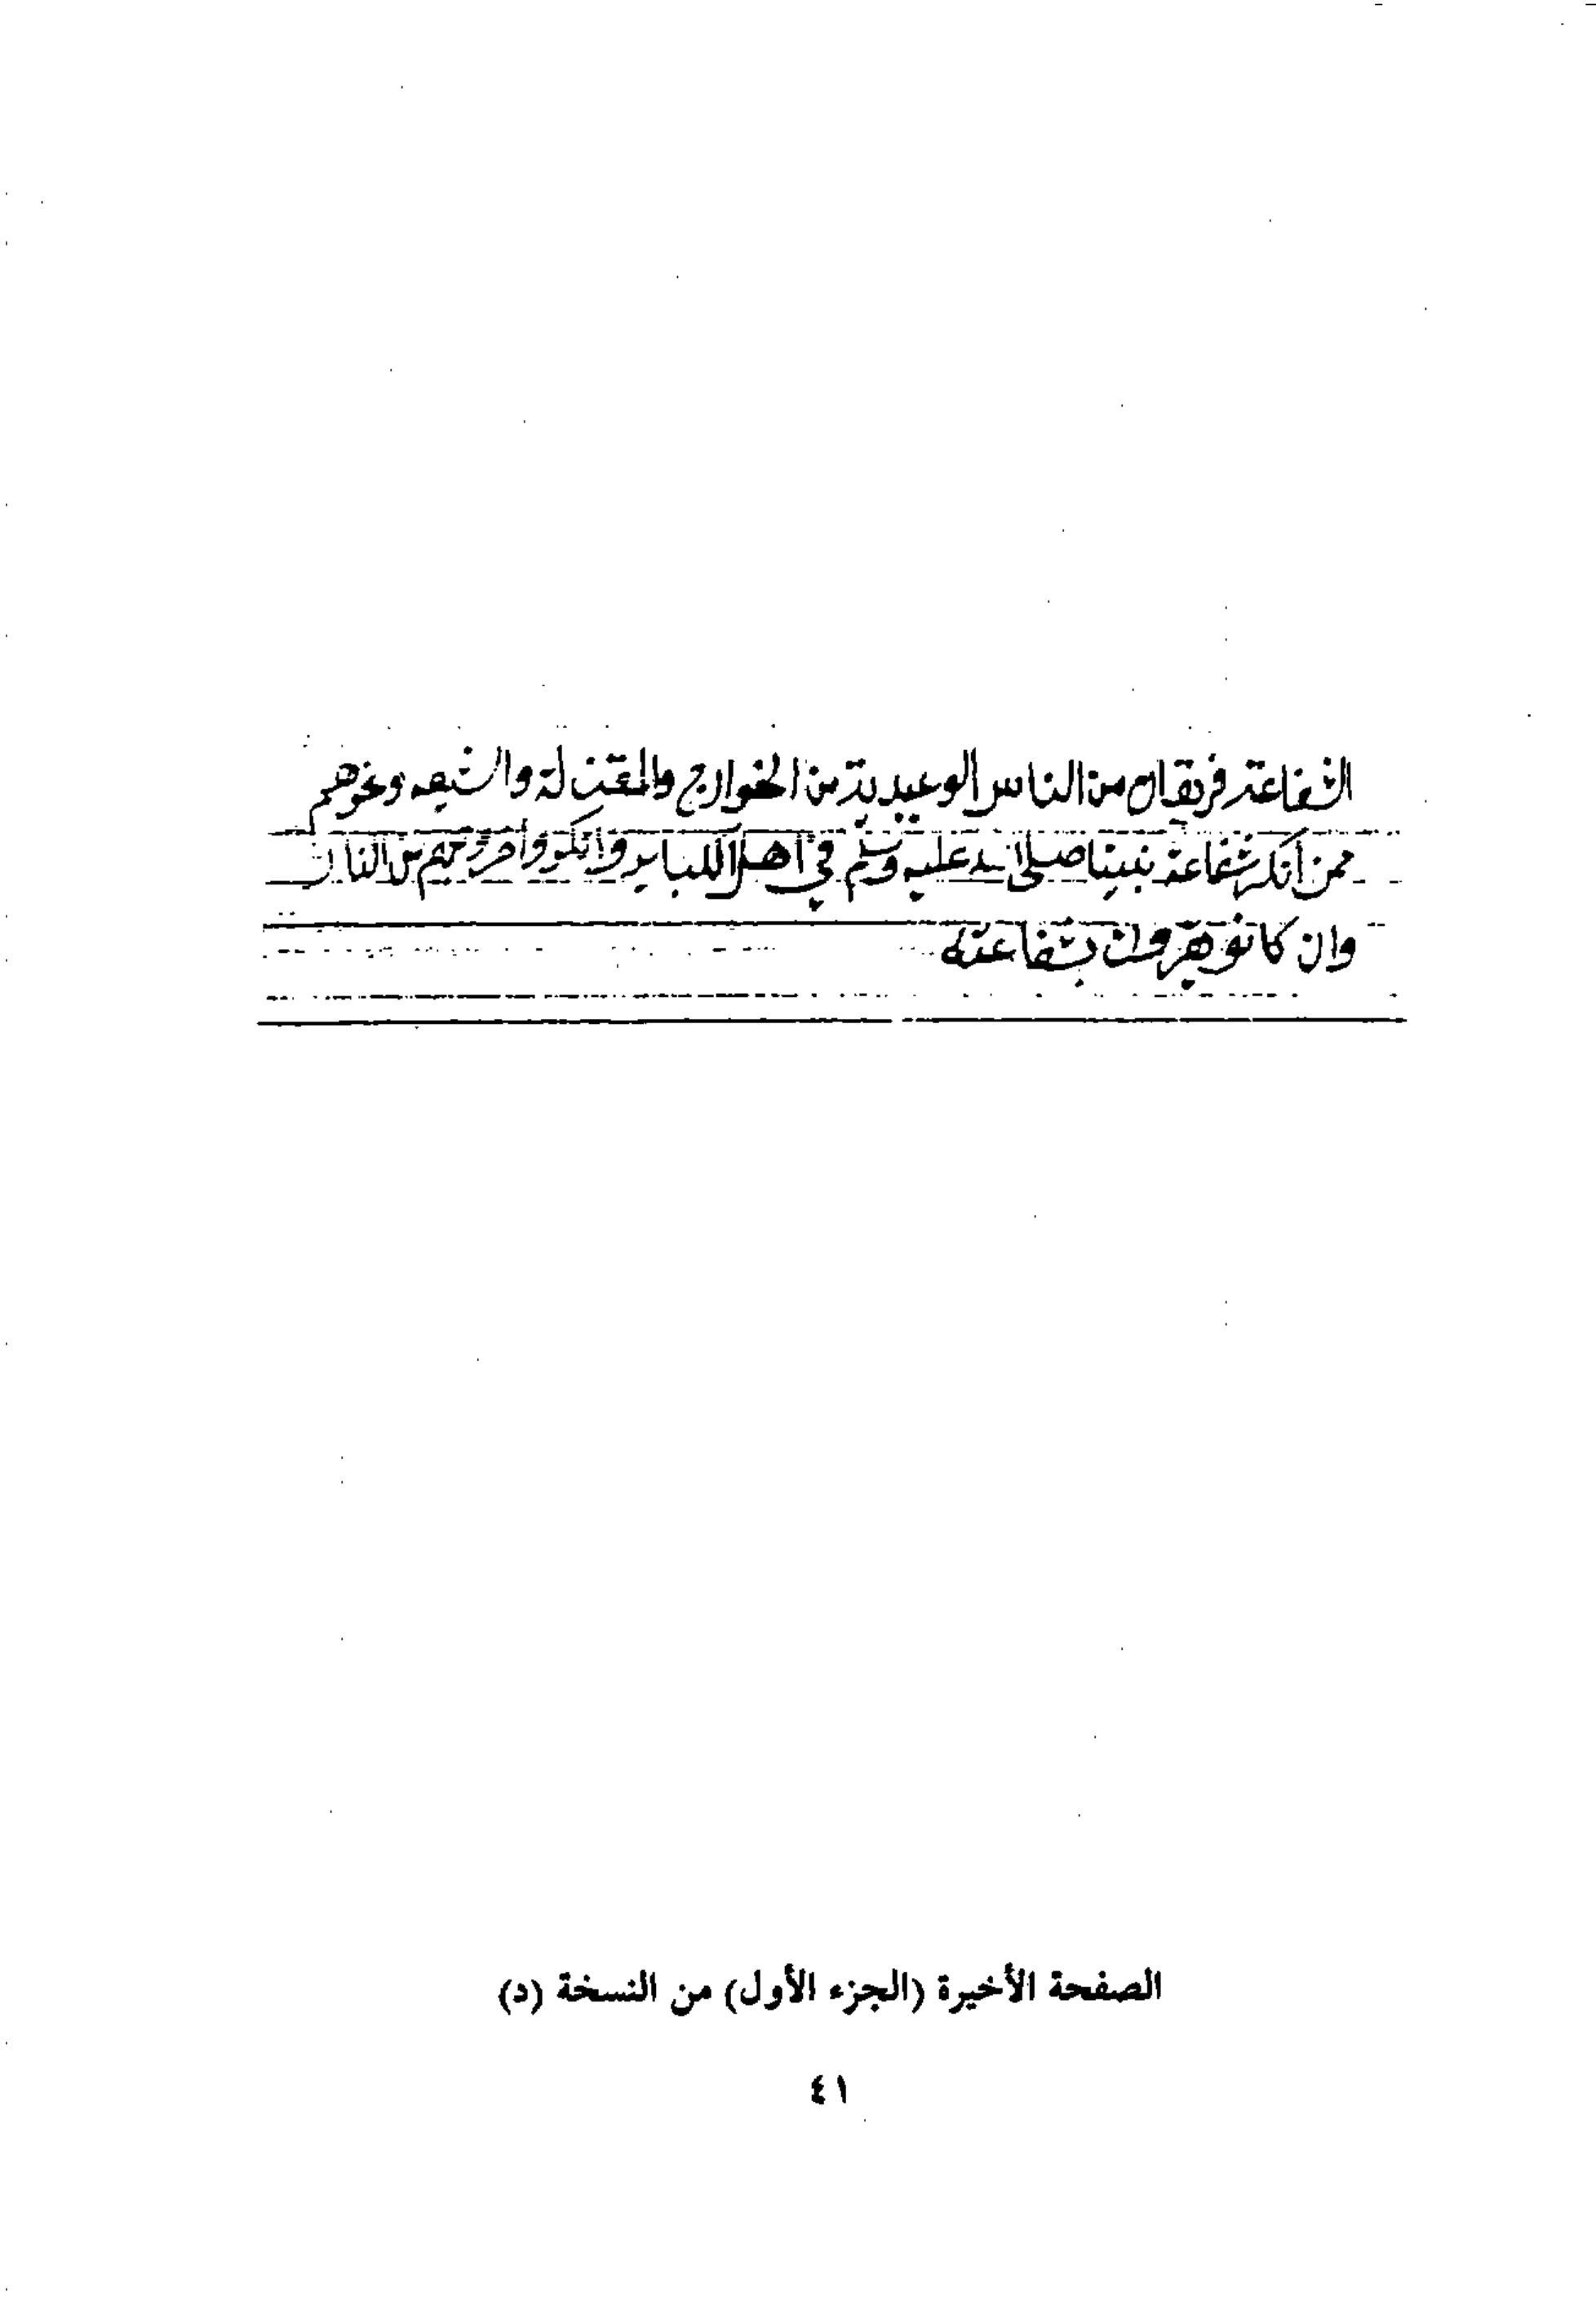 الشفاعة فريقان من الناس الوعيدية من الخوارج والمعتزلة والشيعه ونحوهم
ممن أنكر شفاعة نبينا صلى الله عليه وسلم في أهل الكباير وأنكروا خروجهم من النار
وان كانو يقرون بشفاعته
الصفحة الأخيرة (الجزء الأول) من النسخة (د)
٤١